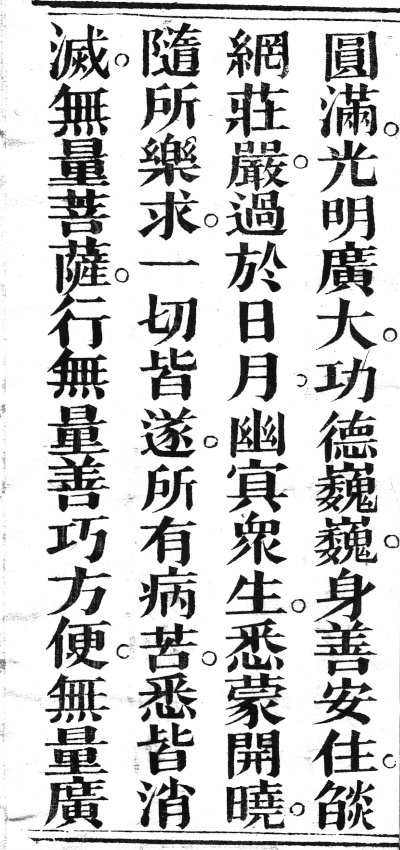 圓滿。光明廣大。功德巍巍。身善安住。𦦨
網莊嚴。過於日月。幽冥衆生。悉蒙開曉。
隨所樂求。一切皆遂。所有病苦。悉皆消
滅。無量菩薩。行無量善巧方便。無量廣